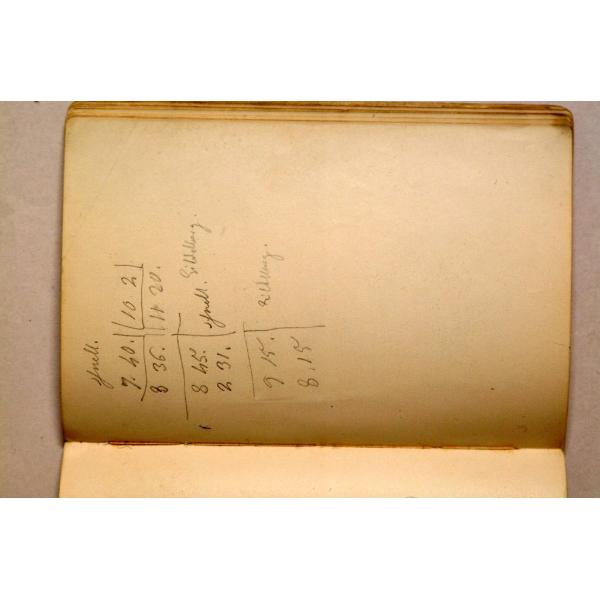 schnell.
7. 40. 10 2
8 36. 11 20.
8 45. schnell.
2 31.
9 15.
8. 15